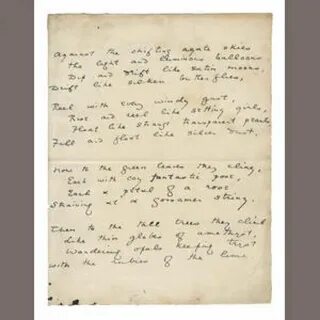 Against the shifting agate skies
The light and luminous balloons
Dip and drift like satin moons,
Drift like silken butterflies,
Reel with every windy gust,
Rise and reel like girls,
Float like strange transparent pearls
Fall and float like silver dust.
Now to the green leaves they cling,
Each with coy fantastic pose,
Each a petal of a rose
Straining at a gossamer string.
Then to the tall trees they climb
Like thin globes of amethyst,
Wandering opals keeping tryst
With the rubies of the lime